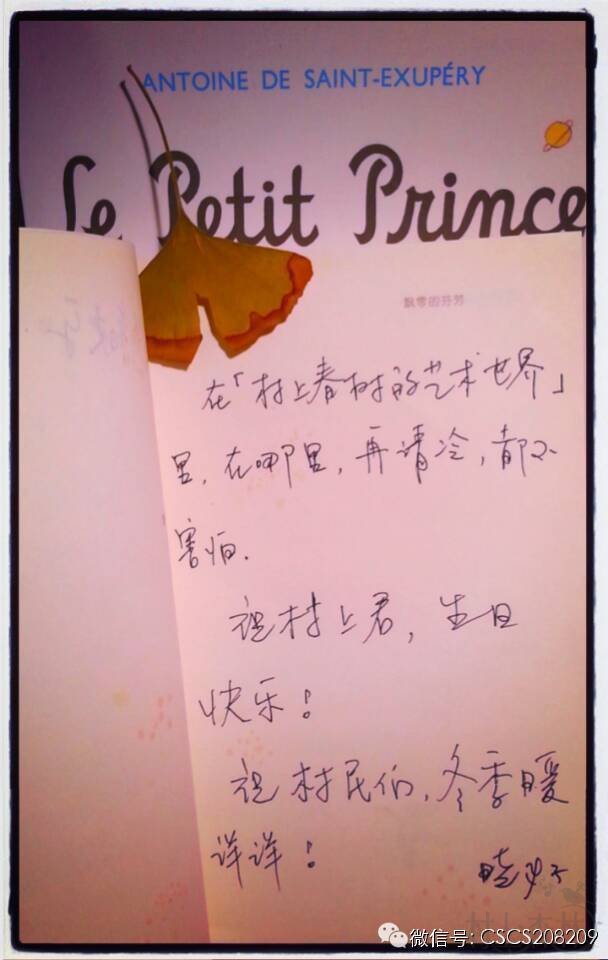 ANTOINE DE SAINT-EXUPÉRY
Le Petit Prince
飘零的芬芳
在「村上春树的艺术世界」
里，在哪里，再清冷，都不
害怕.
祝村上君，生日
快乐！
祝村民们，冬季暖
详详！
微信号: CSCS208209